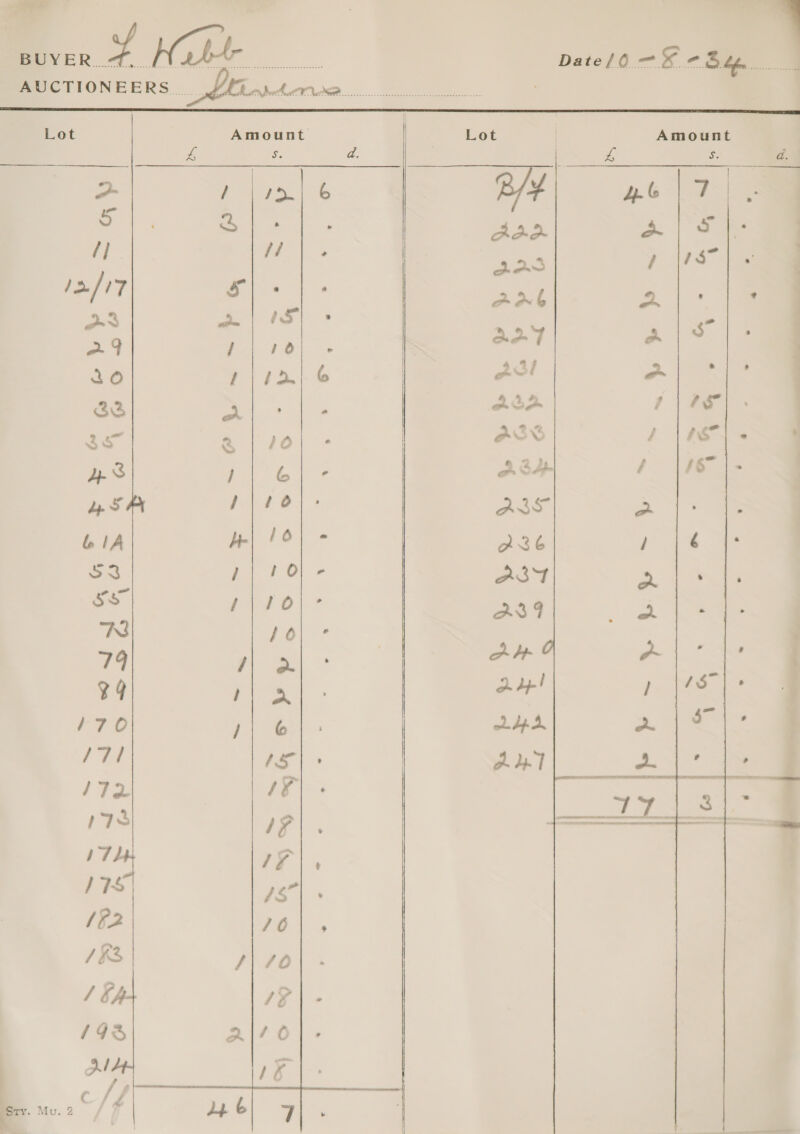 BUYER
Date 10-8-34
AUCTIONEERS
Lot Amount Lot Amount
£ s. d. £ s. d.
2 1 12 6
5 3 . .
11 11 .
12/17 5 . .
23 2 15 .
29 1 10 .
30 1 12 6
33 2 . .
35 3 10 .
43 1 6 -
45A 1 10 .
61A 4 10 -
53 1 10 -
55 1 10 -
73 10 .
79 1 2 .
89 1 2 .
170 1 6 .
171 15 .
172 18 .
173 18 .
174 18 .
175 15 .
182 10 .
183 1 10 .
184 18 -
193 2 10 .
214 18 .
c/f 46 7 .
Sty. Mu. 2
B/F 46 7 .
222 2 5 .
223 1 15 .
226 2 . .
227 2 5 .
231 2 . .
232 1 15 .
233 1 15 .
234 1 15 -
235 2 . .
236 1 6 .
237 2 . .
239 2 . .
240 2 . .
241 1 15 .
242 2 5 .
247 2 . .
77 3 -